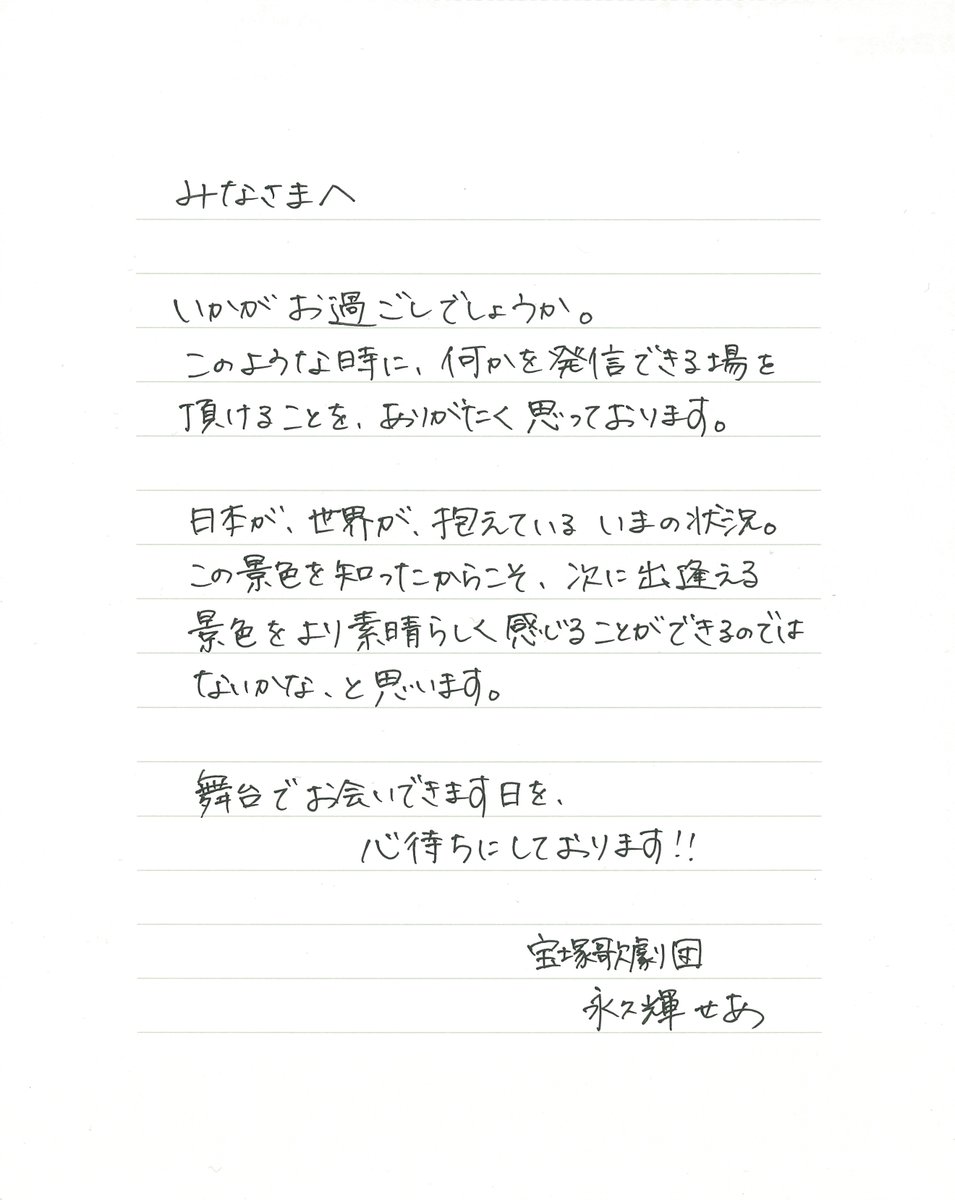 みなさまへ
いかがお過ごしでしょうか。
このような時に、何かを発信できる場を
頂けることを、ありがたく思っております。
日本が、世界が、抱えている いまの状況。
この景色を知ったからこそ、次に出逢える
景色をより素晴らしく感じることができるのでは
ないかな、と思います。
舞台でお会いできます日を、
心待ちにしております!!
宝塚歌劇団
永久輝せあ